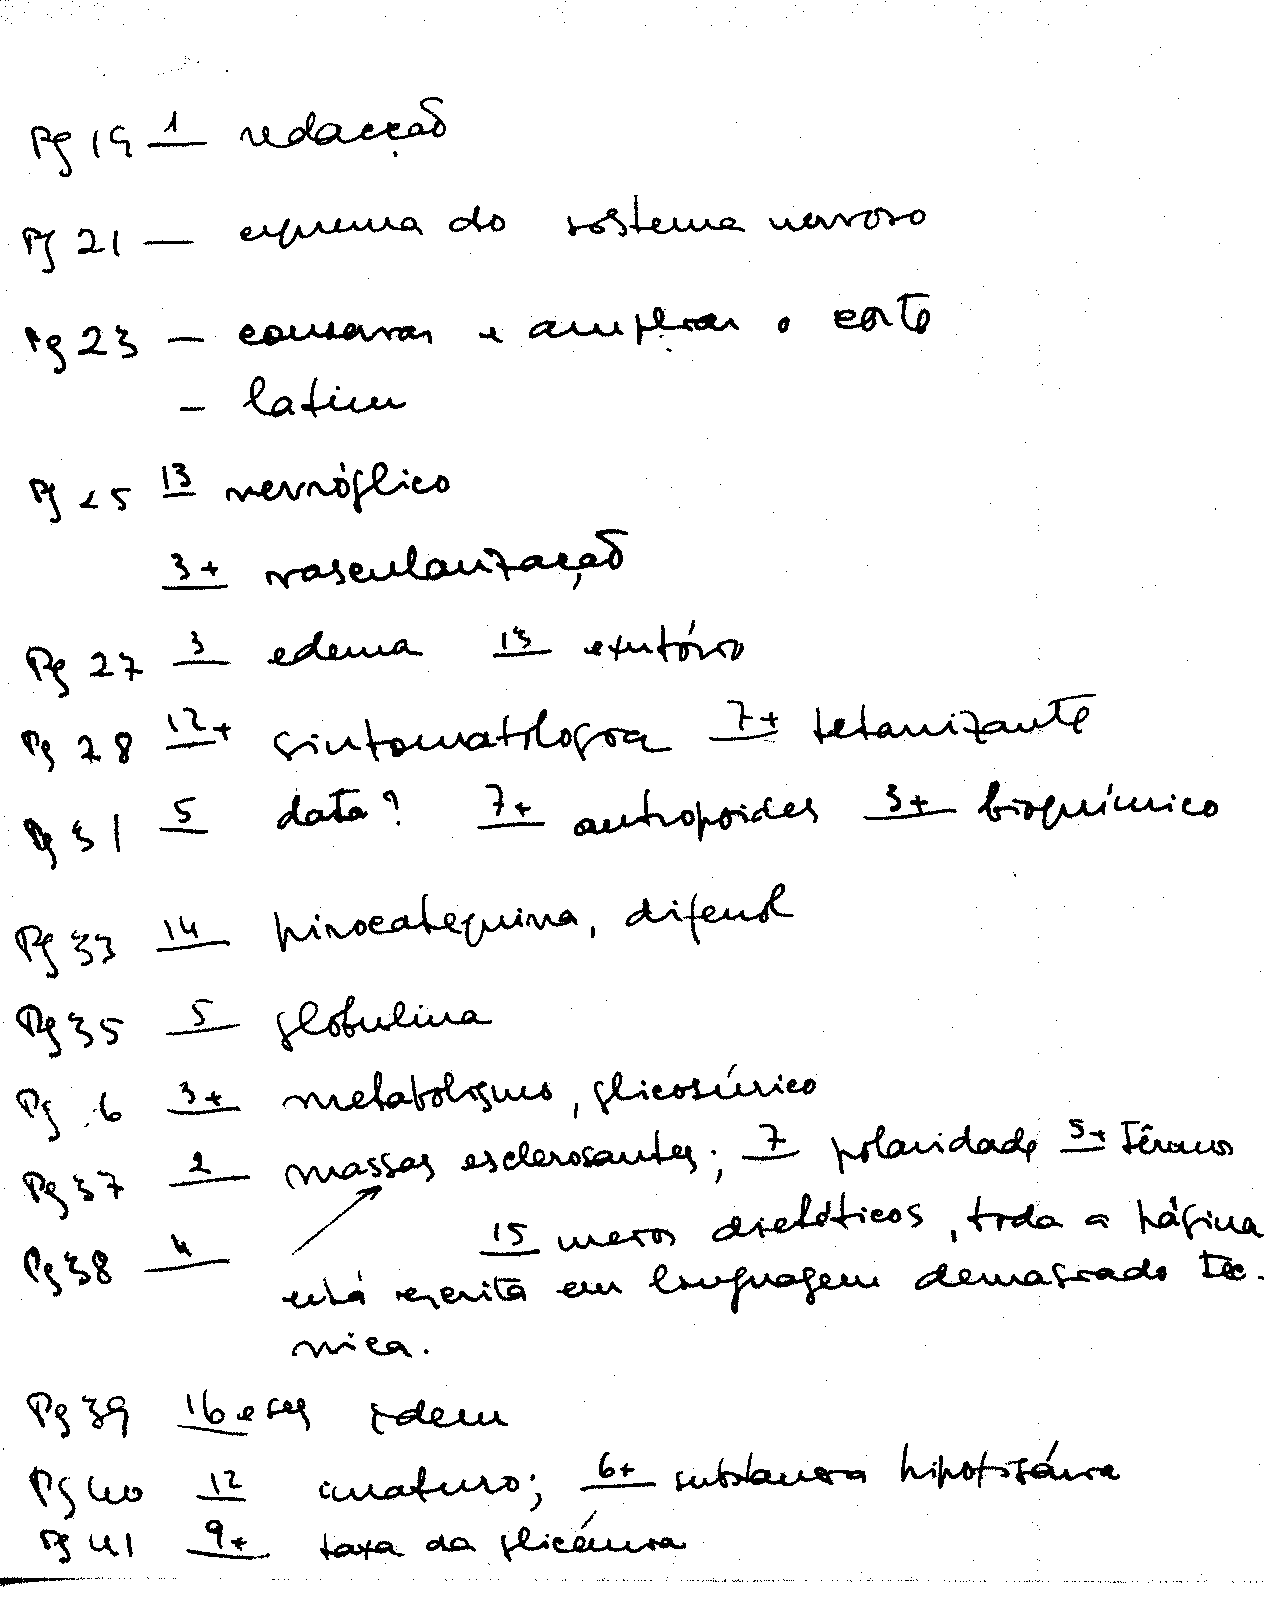 Pg 19 1 redacção
Pg 21 — esquema do sistema nervoso
Pg 23 — conservar e ampliar o corte
— latim
Pg 25 13 nevróglico
3+ vascularização
Pg 27 3 edema 13 exutório
Pg 28 12+ sintomatologia 7+ tetanizante
Pg 31 5 data? 7+ antropoides 3+ bioquímico
Pg 33 14 pirocatequina, difenol
Pg 35 5 globulina
Pg 6 3+ metabolismo, glicosúrico
Pg 37 2 massas esclerosantes; 7 polaridade 5+ Término
Pg 38 4 15 meros dietéticos, toda a página
está escrita em linguagem demasiado téc.
nica.
Pg 39 16 e seg idem
Pg 40 12 imaturo; 6+ substância hipofisária
Pg 41 9+ taxa da glicémia